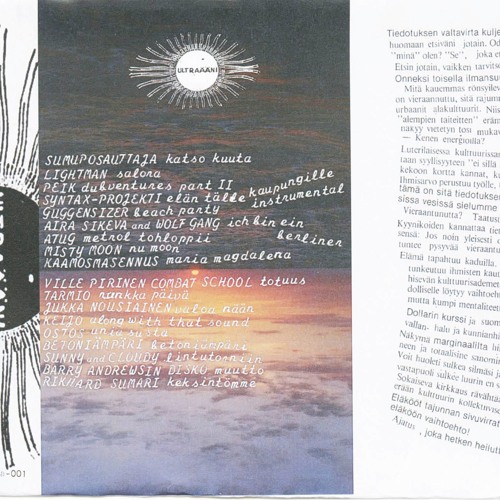 ULTRAÄÄNI
SUMUPOSAUTTAJA katso kuuta
LIGHTMAN salora
PEIK dubventures part II
SYNTAX-PROJEKTI elän tälle kaupungille
instrumental
GUGGENSIZER beach party
AIRA SIKEVA and WOLF GANG ich bin ein
berliner
ATUG metrol tohloppii
MISTY MOON nu moon
KAAMOSMASENNUS maria magdalena
VILLE PIRINEN COMBAT SCHOOL totuus
TARMIO rankka päivä
JUKKA NOUSIAINEN valoa näön
KEIJO along with that sound
BETONIÄMPÄRI betoniämpäri
SUNNY and CLOUDY lintutorniin
BARRY ANDREWSIN DISKO muutto
RIKHARD SUMARI keksintömme
-001
Tiedotuksen valtavirta kulje
huomaan etsiväni jotain. Od
"minä" olen? "Se", joka e
Etsin jotain, vaikken tarvits
Onneksi toisella ilmansu
Mitä kauemmas rönsyilev
on vieraannuttu, sitä rajumm
urbaanit alakulttuurit. Niis
"alempien taiteitten" eräm
näkyy vietetyn tosi muka
— Kenen energioulla?
Luterilaisessa kulttuurissa
raan syyllisyyteen "ei sillä
kekoon kortta kannat, ku
Ihmisarvo perustuu työlle,
tämä on sitä tiedotuksen
sissa vesissä sielumme
Vieraantunutta? Taatus
Kyynikoiden kannattaa tiet
sensä: Jos noin yleisesti o
tumee pysyvää vieraantu
Elämä tapahtuu kaduilla.
tunkeutuu ihmisten kau
hisevän kulttuurisademet
dolliselle löytyy vaihtoeh
mutta kumpi mentaliteet
Dollarin kurssi ja suome
vallan- halu ja kuntianhi
Näkymä marginaalilta his
neen ja sosialisine sanomin
Voit huoleti sulkea silmäsi ja
vastapuoli sulkee luurin en
Sokaiseva kirkkaus rävähtää
erään kulttuurin kollektivis
Eläkööt tajunnan sivuvirrat
eläköön vaihtoehto!
Ajatus , joka hetken heilutt